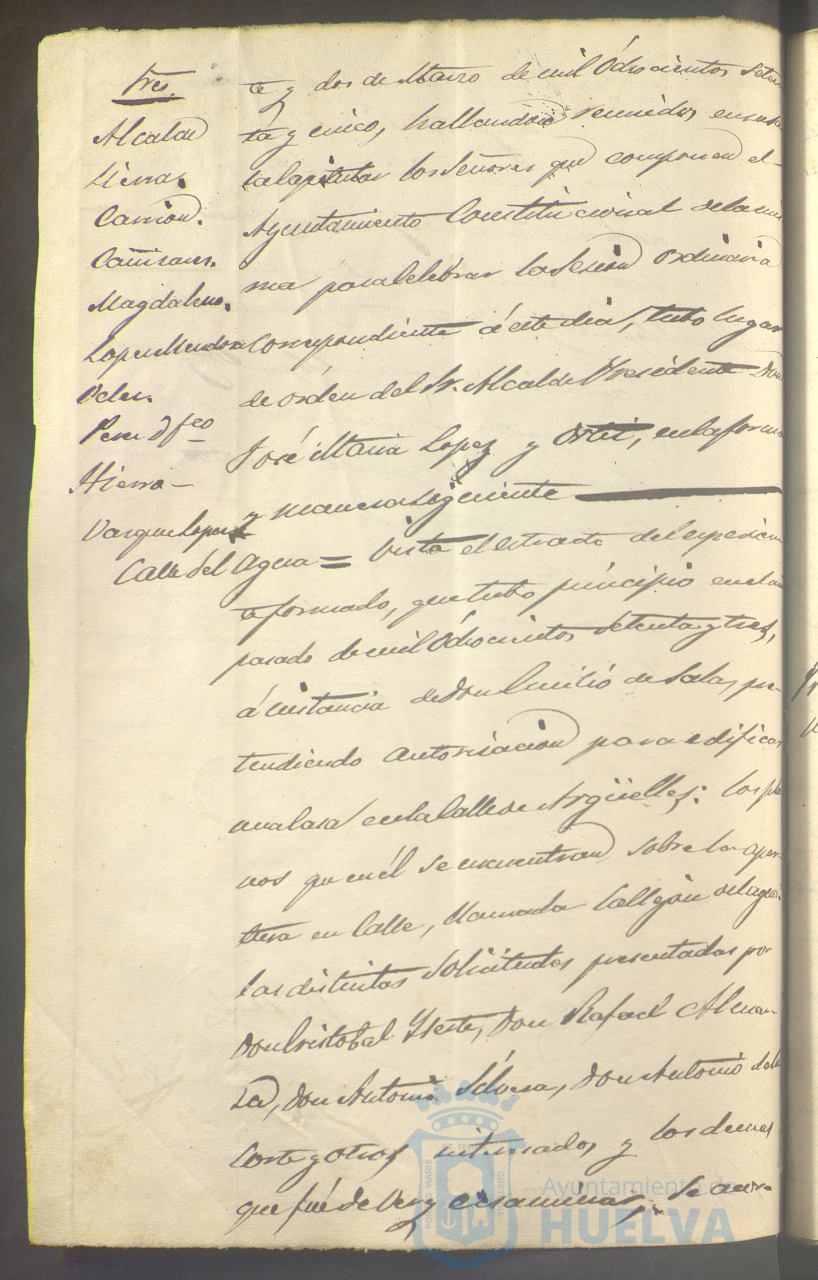 Sres.
Alcalde
Sierra.
Carrion.
Cañizares.
Magdaleno.
Lopez Mendoza
Perez D. Fco
Hierro
Vazquez Lopez
te y dos de Marzo de mil Ochocientos seten
ta y cinco, hallandose reunidos en su Sa
la Capitular los Señores que componen el
Ayuntamiento Constitucional de la mis
ma para celebrar la Sesion Ordinaria
correspondiente á este dia, tubo lugar
de orden del Sr. Alcalde Presidente Don
José Maria Lopez y Ortiz, en la forma
y manera siguiente
Calle del Agua = Vista el estracto del espedien
te formado, que tubo principio en el año
pasado de mil Ochocientos setenta y tres,
á instancia de Don Emilio de Salas, pre
tendiendo autorizacion para edificar
una casa en la Calle de Argüelles: los pla
nos que en él se encuentran sobre la aper
tura en Calle, llamada Callejon del agua:
las distintas solicitudes presentadas por
Don Cristobal Yeste, Don Rafael Alman
za, Don Antonio Silvera, Don Antonio de la
Corte y otros interesados y los demas
que fué de ver y ecsaminar. Se acor
PORTUS MARIS
ET TERRAE
CUSTODIA
Ayuntamiento de
HUELVA